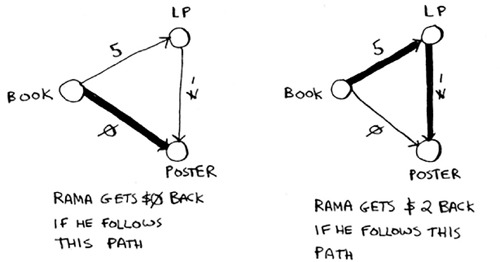 LP
5
-7
BOOK
0
POSTER
RAMA GETS $0 BACK
IF HE FOLLOWS
THIS PATH
LP
5
-7
BOOK
0
POSTER
RAMA GETS $2 BACK
IF HE FOLLOWS THIS
PATH